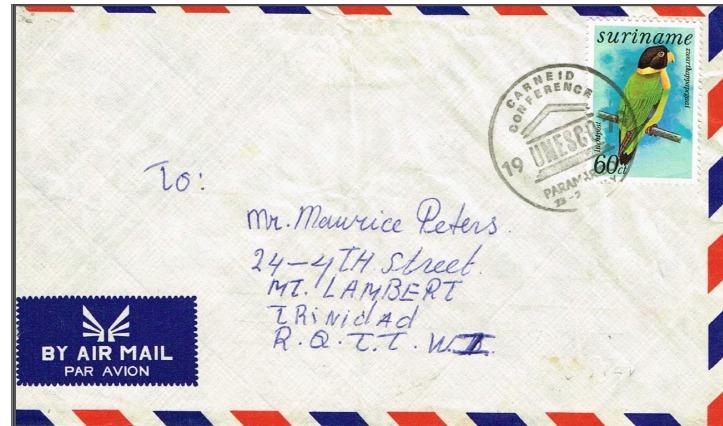 suriname
luchtpost
60ct
CARNEID
CONFERENCE
UNESCO
19
PARAM
To:
Mr. Maurice Peters.
24-4TH Street.
MT. LAMBERT
TRINIdAd
R.Q.T.T. W.I.
BY AIR MAIL
PAR AVION